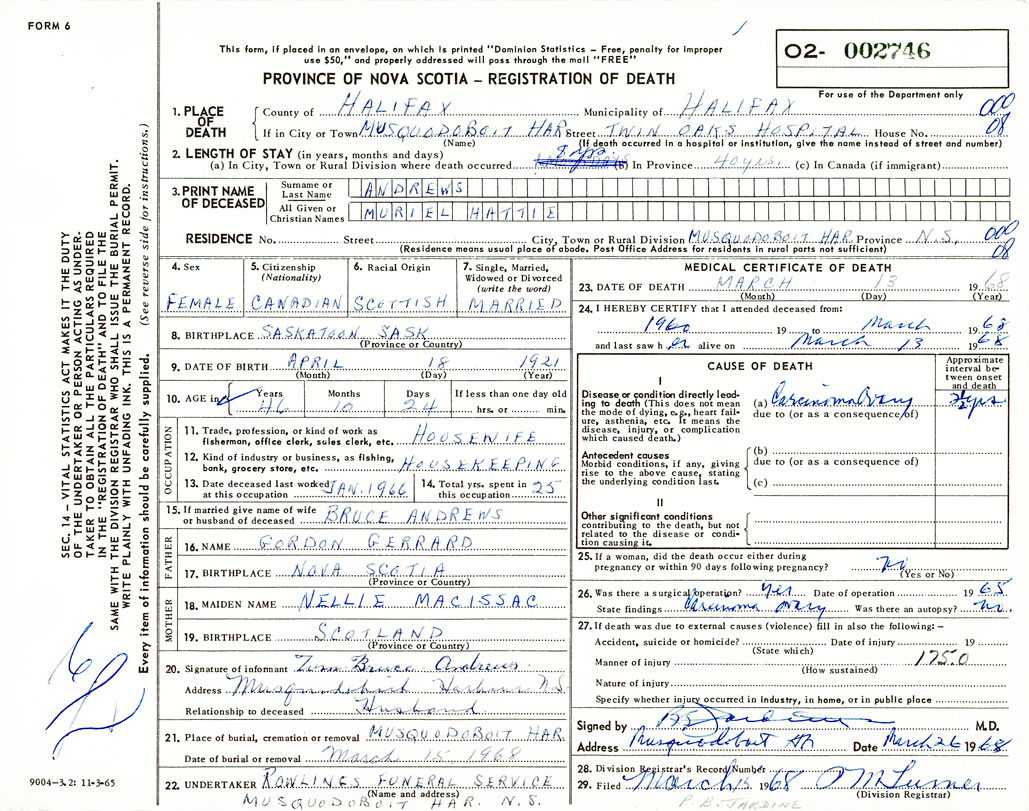 FORM 6
This form, if placed in an envelope, on which is printed "Dominion Statistics – Free, penalty for improper
use $50," and properly addressed will pass through the mail "FREE"
O2- 002746
For use of the Department only
PROVINCE OF NOVA SCOTIA – REGISTRATION OF DEATH
1. PLACE OF DEATH
County of HALIFAX Municipality of HALIFAX
000
08
If in City or Town MUSQUODOBOIT HAR Street TWIN OAKS HOSPITAL House No.
(Name) (If death occurred in a hospital or institution, give the name instead of street and number)
2. LENGTH OF STAY (in years, months and days)
(a) In City, Town or Rural Division where death occurred 8 yrs (b) In Province 40 yrs. (c) In Canada (if immigrant)
3. PRINT NAME OF DECEASED
Surname or Last Name ANDREWS
All Given or Christian Names MURIEL HATTIE
RESIDENCE No. Street City, Town or Rural Division MUSQUODOBOIT HAR. Province N.S.
000
08
(Residence means usual place of abode. Post Office Address for residents in rural parts not sufficient)
4. Sex
FEMALE
5. Citizenship
(Nationality)
CANADIAN
6. Racial Origin
SCOTTISH
7. Single, Married, Widowed or Divorced
(write the word)
MARRIED
8. BIRTHPLACE SASKATOON SASK
(Province or Country)
9. DATE OF BIRTH APRIL 18 1921
(Month) (Day) (Year)
10. AGE in
Years Months Days If less than one day old
46 10 24 hrs. or min.
OCCUPATION
11. Trade, profession, or kind of work as
fisherman, office clerk, sales clerk, etc. HOUSEWIFE
12. Kind of industry or business, as fishing,
bank, grocery store, etc. HOUSEKEEPING
13. Date deceased last worked at this occupation JAN. 1966
14. Total yrs. spent in this occupation 25
15. If married give name of wife
or husband of deceased BRUCE ANDREWS
FATHER
16. NAME GORDON GERRARD
17. BIRTHPLACE NOVA SCOTIA
(Province or Country)
MOTHER
18. MAIDEN NAME NELLIE MACISSAC
19. BIRTHPLACE SCOTLAND
(Province or Country)
20. Signature of informant Bruce Andrews
Address Musquodoboit Harbour N.S.
Relationship to deceased Husband
21. Place of burial, cremation or removal MUSQUODOBOIT HAR.
Date of burial or removal March 15 1968
22. UNDERTAKER ROWLINGS FUNERAL SERVICE
(Name and address)
MUSQUODOBOIT HAR. N.S.
MEDICAL CERTIFICATE OF DEATH
23. DATE OF DEATH MARCH 13 1968
(Month) (Day) (Year)
24. I HEREBY CERTIFY that I attended deceased from:
1960 19 to March 1968
and last saw her alive on March 13 1968
CAUSE OF DEATH
Approximate interval between onset and death
I
Disease or condition directly leading to death (This does not mean the mode of dying, e.g., heart failure, asthenia, etc. It means the disease, injury, or complication which caused death.)
(a) Carcinoma Ovary 2½ yrs
due to (or as a consequence of)
Antecedent causes
Morbid conditions, if any, giving rise to the above cause, stating the underlying condition last.
(b)
due to (or as a consequence of)
(c)
II
Other significant conditions
contributing to the death, but not related to the disease or condition causing it.
25. If a woman, did the death occur either during
pregnancy or within 90 days following pregnancy? no
(Yes or No)
26. Was there a surgical operation? yes Date of operation 1965
State findings Carcinoma Ovary Was there an autopsy? no.
27. If death was due to external causes (violence) fill in also the following: –
Accident, suicide or homicide? Date of injury 19
(State which)
Manner of injury 175.0
(How sustained)
Nature of injury
Specify whether injury occurred in industry, in home, or in public place
Signed by M.D.
Address Musquodoboit Date March 26 1968
28. Division Registrar's Record Number
29. Filed March 15 1968
(Division Registrar)
P. B. JARDINE
SEC. 14 – VITAL STATISTICS ACT MAKES IT THE DUTY
OF THE UNDERTAKER OR PERSON ACTING AS UNDER-
TAKER TO OBTAIN ALL THE PARTICULARS REQUIRED
IN THE "REGISTRATION OF DEATH" AND TO FILE THE
SAME WITH THE DIVISION REGISTRAR WHO SHALL ISSUE THE BURIAL PERMIT.
WRITE PLAINLY WITH UNFADING INK. THIS IS A PERMANENT RECORD.
Every item of information should be carefully supplied. (See reverse side for instructions.)
9004–3.2: 11-3-65